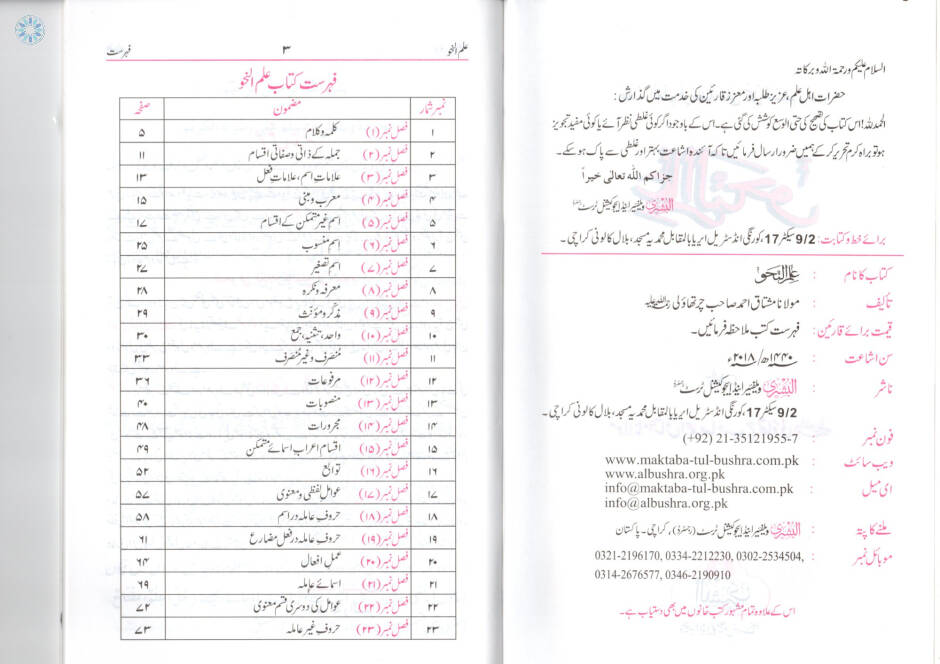 السلام علیکم ورحمۃ اللہ وبرکاتہ
حضرات اہل علم، عزیز طلبہ اور معزز قارئین کی خدمت میں گذارش :
الحمدللہ! اس کتاب کی تصحیح کی حتی الوسع کوشش کی گئی ہے۔ اس کے باوجود اگر کوئی غلطی نظر آئے یا کوئی مفید تجویز
ہو تو براہ کرم تحریر کر کے ہمیں ضرور ارسال فرمائیں تاکہ آئندہ اشاعت بہتر اور غلطی سے پاک ہوسکے۔
جزاکم اللہ تعالی خیراً
البشریٰ ویلفیئر اینڈ ایجوکیشنل ٹرسٹ
برائے خط و کتابت: 9/2 سیکٹر 17، کورنگی انڈسٹریل ایریا بالمقابل محمدیہ مسجد، بلال کالونی کراچی۔
کتاب کا نام : علم النحو
تألیف : مولانا مشتاق احمد صاحب چرتھاؤلی رحمۃ اللہ علیہ
قیمت برائے قارئین : فہرست کتب ملاحظہ فرمائیں۔
سن اشاعت : ۱۴۴۰ھ/ ۲۰۱۸ء
ناشر : البشریٰ ویلفیئر اینڈ ایجوکیشنل ٹرسٹ
9/2 سیکٹر 17، کورنگی انڈسٹریل ایریا بالمقابل محمدیہ مسجد، بلال کالونی کراچی۔
فون نمبر : (+92) 21-35121955-7
ویب سائٹ : www.maktaba-tul-bushra.com.pk
www.albushra.org.pk
ای میل : info@maktaba-tul-bushra.com.pk
info@albushra.org.pk
ملنے کا پتہ : البشریٰ ویلفیئر اینڈ ایجوکیشنل ٹرسٹ (رجسٹرڈ)، کراچی۔ پاکستان
موبائل نمبر : 0321-2196170, 0334-2212230, 0302-2534504,
0314-2676577, 0346-2190910
اس کے علاوہ تمام مشہور کتب خانوں میں بھی دستیاب ہے۔
علم النحو ۳ فہرست
فہرست کتاب علم النحو
نمبر شمار مضمون صفحہ
۱ فصل نمبر (۱) کلمہ وکلام ۵
۲ فصل نمبر (۲) جملہ کے ذاتی وصفاتی اقسام ۱۱
۳ فصل نمبر (۳) علامات اسم، علامات فعل ۱۳
۴ فصل نمبر (۴) معرب ومبنی ۱۵
۵ فصل نمبر (۵) اسم غیر متمکن کے اقسام ۱۷
۶ فصل نمبر (۶) اسم منسوب ۲۵
۷ فصل نمبر (۷) اسم تصغیر ۲۷
۸ فصل نمبر (۸) معرفہ ونکرہ ۲۸
۹ فصل نمبر (۹) مذکر ومؤنث ۲۹
۱۰ فصل نمبر (۱۰) واحد، تثنیہ، جمع ۳۰
۱۱ فصل نمبر (۱۱) منصرف وغیر منصرف ۳۳
۱۲ فصل نمبر (۱۲) مرفوعات ۳۶
۱۳ فصل نمبر (۱۳) منصوبات ۴۰
۱۴ فصل نمبر (۱۴) مجرورات ۴۸
۱۵ فصل نمبر (۱۵) اقسام اعراب اسمائے متمکن ۴۹
۱۶ فصل نمبر (۱۶) توابع ۵۲
۱۷ فصل نمبر (۱۷) عوامل لفظی ومعنوی ۵۷
۱۸ فصل نمبر (۱۸) حروف عاملہ در اسم ۵۸
۱۹ فصل نمبر (۱۹) حروف عاملہ در فعل مضارع ۶۱
۲۰ فصل نمبر (۲۰) عمل افعال ۶۴
۲۱ فصل نمبر (۲۱) اسمائے عاملہ ۶۹
۲۲ فصل نمبر (۲۲) عوامل کی دوسری قسم معنوی ۷۲
۲۳ فصل نمبر (۲۳) حروف غیر عاملہ ۷۳